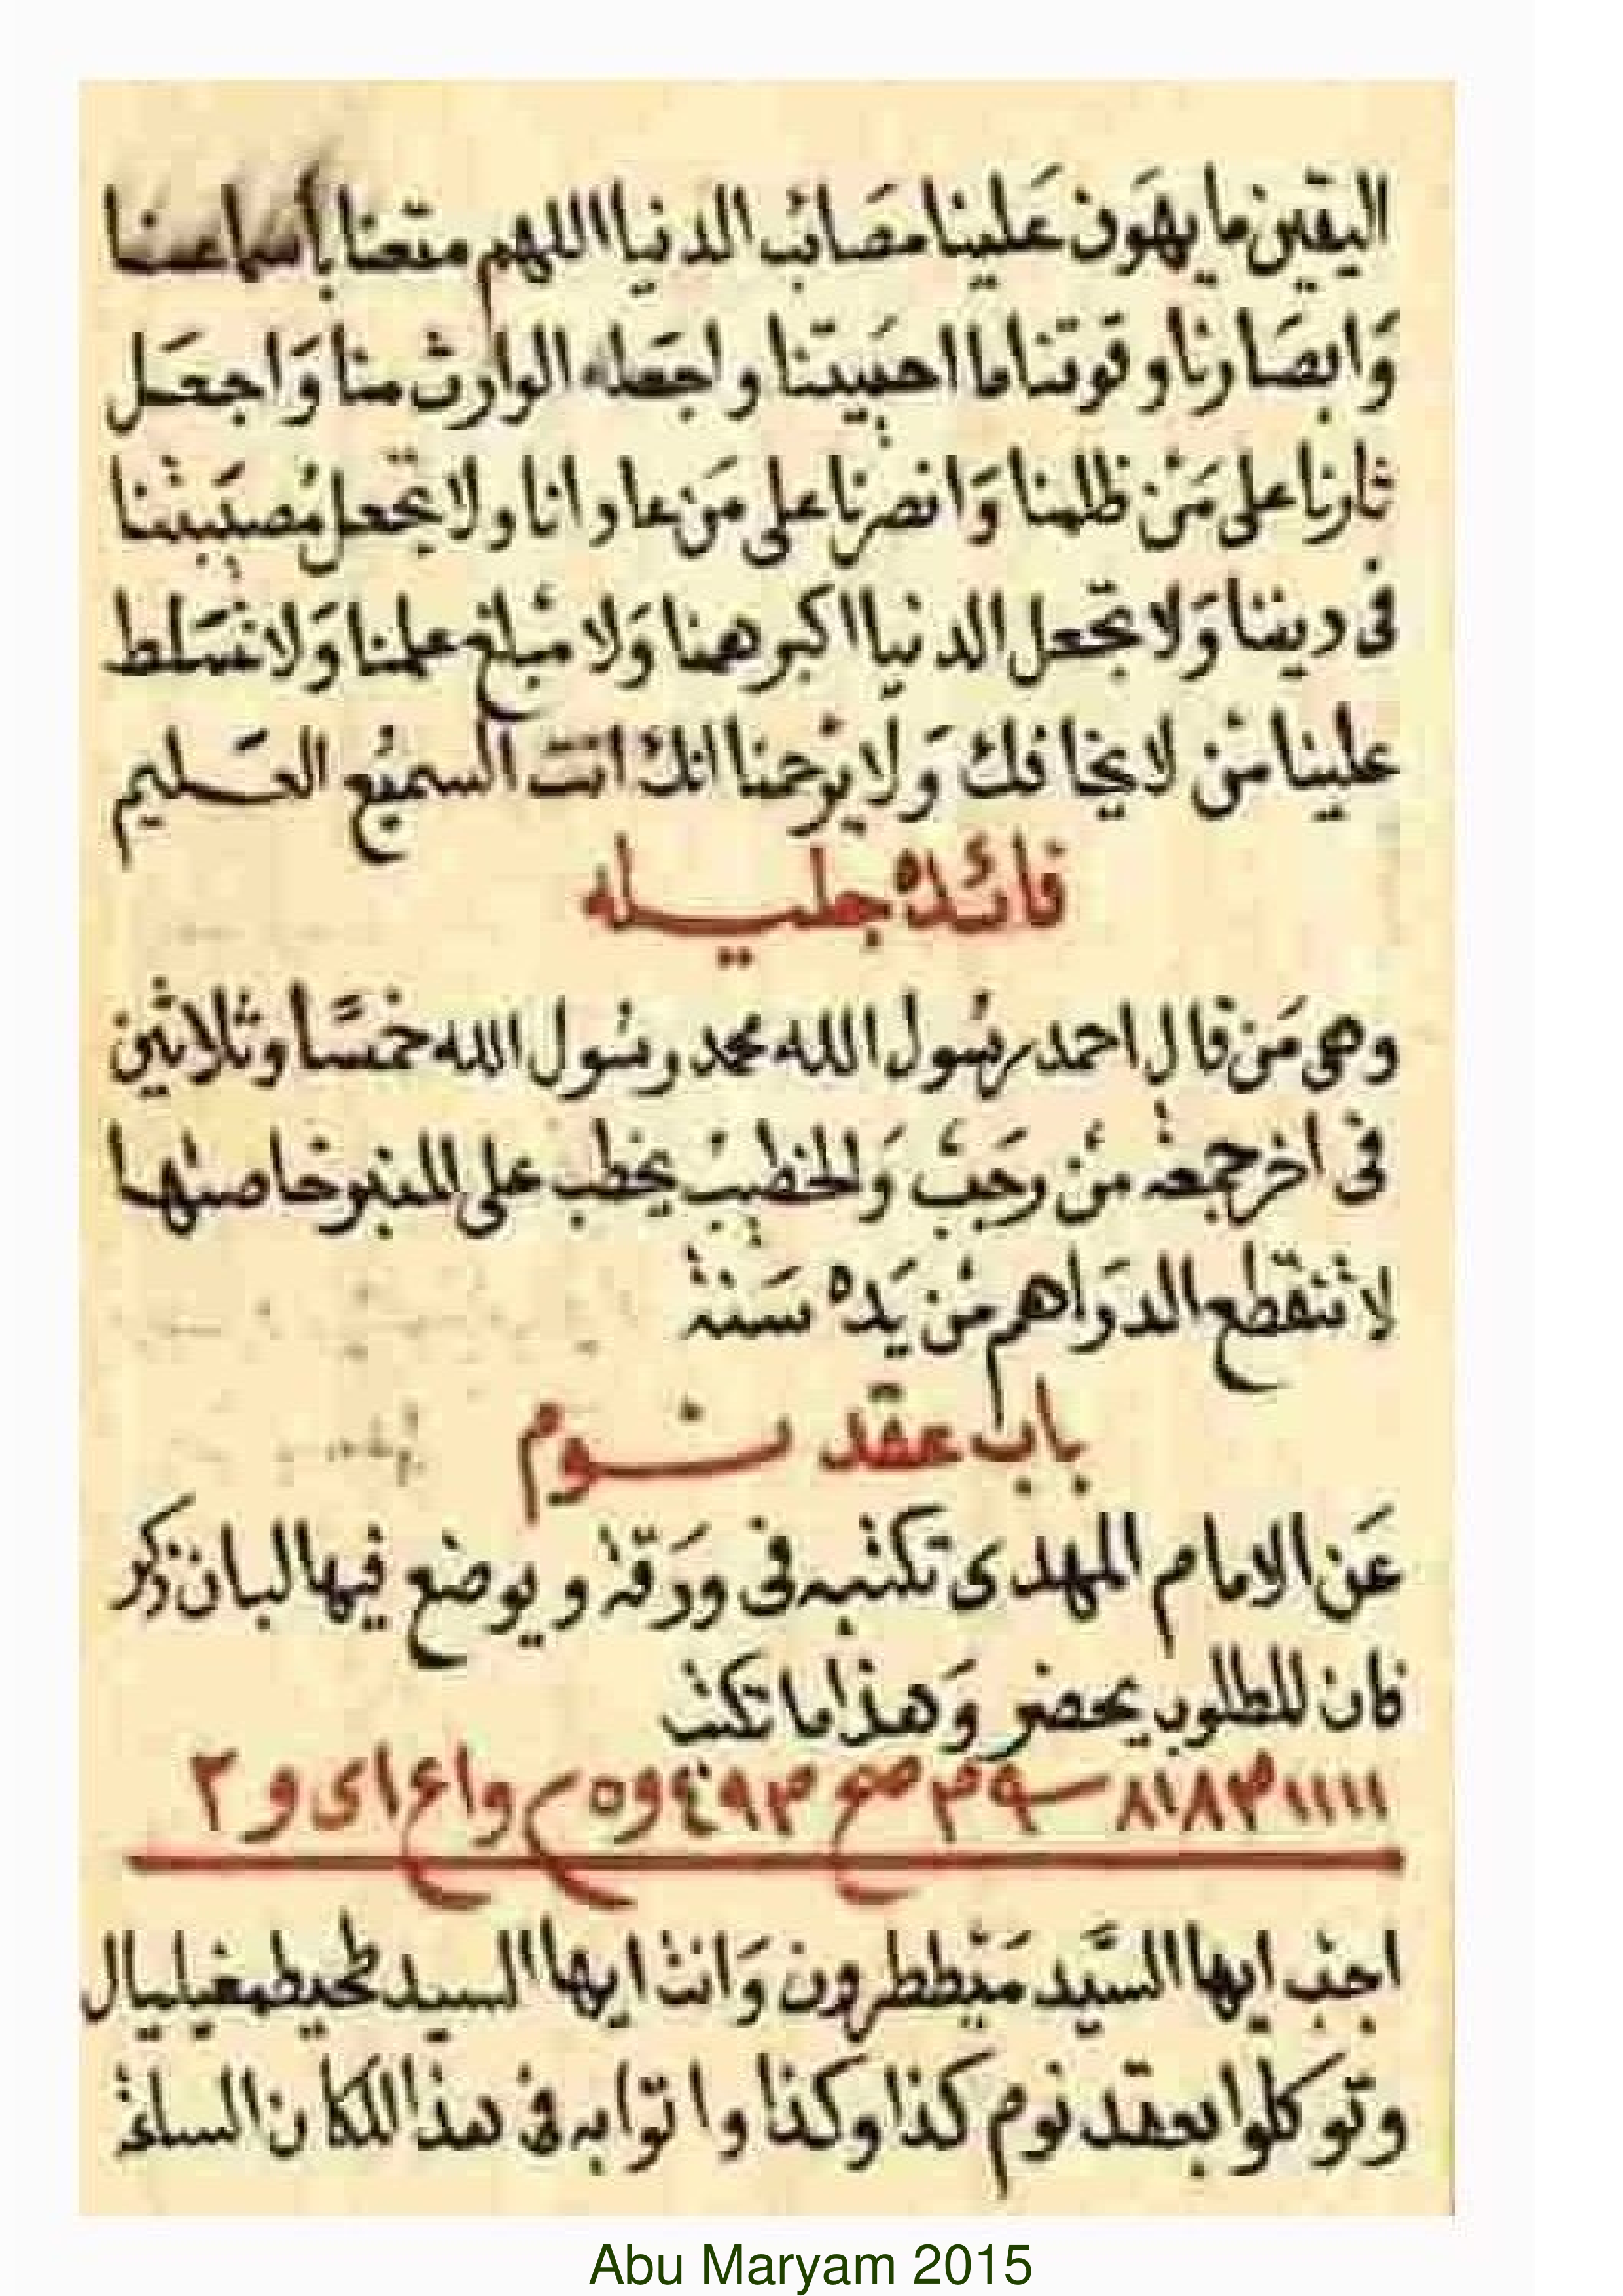 اليقين ما يهون علينا مصائب الدنيا اللهم متعنا بأسماعنا
وابصارنا وقوتنا ما احييتنا واجعله الوارث منا واجعل
ثارنا على من ظلمنا وانصرنا على من عادانا ولا تجعل مصيبتنا
فى ديننا ولا تجعل الدنيا اكبر همنا ولا مبلغ علمنا ولا تسلط
علينا من لا يخافك ولا يرحمنا انك انت السميع العليم
فائدة جليله
وهى من قال احمد رسول الله محمد رسول الله خمسًا وثلاثين
فى اخر جمعة من رجب والخطيب يخطب على المنبر خاصيتها
لا تنقطع الدراهم من يده سنة
باب عقد نوم
عن الامام المهدى تكتبه فى ورقة ويوضع فيها لبان ذكر
فان المطلوب يحضر وهذا ما تكتب
١١١١
اجب ايها السيد ميططرون وانت ايها السيد
وتوكلوا بعقد نوم كذا وكذا واتوا به فى هذا المكان الساعة
Abu Maryam 2015